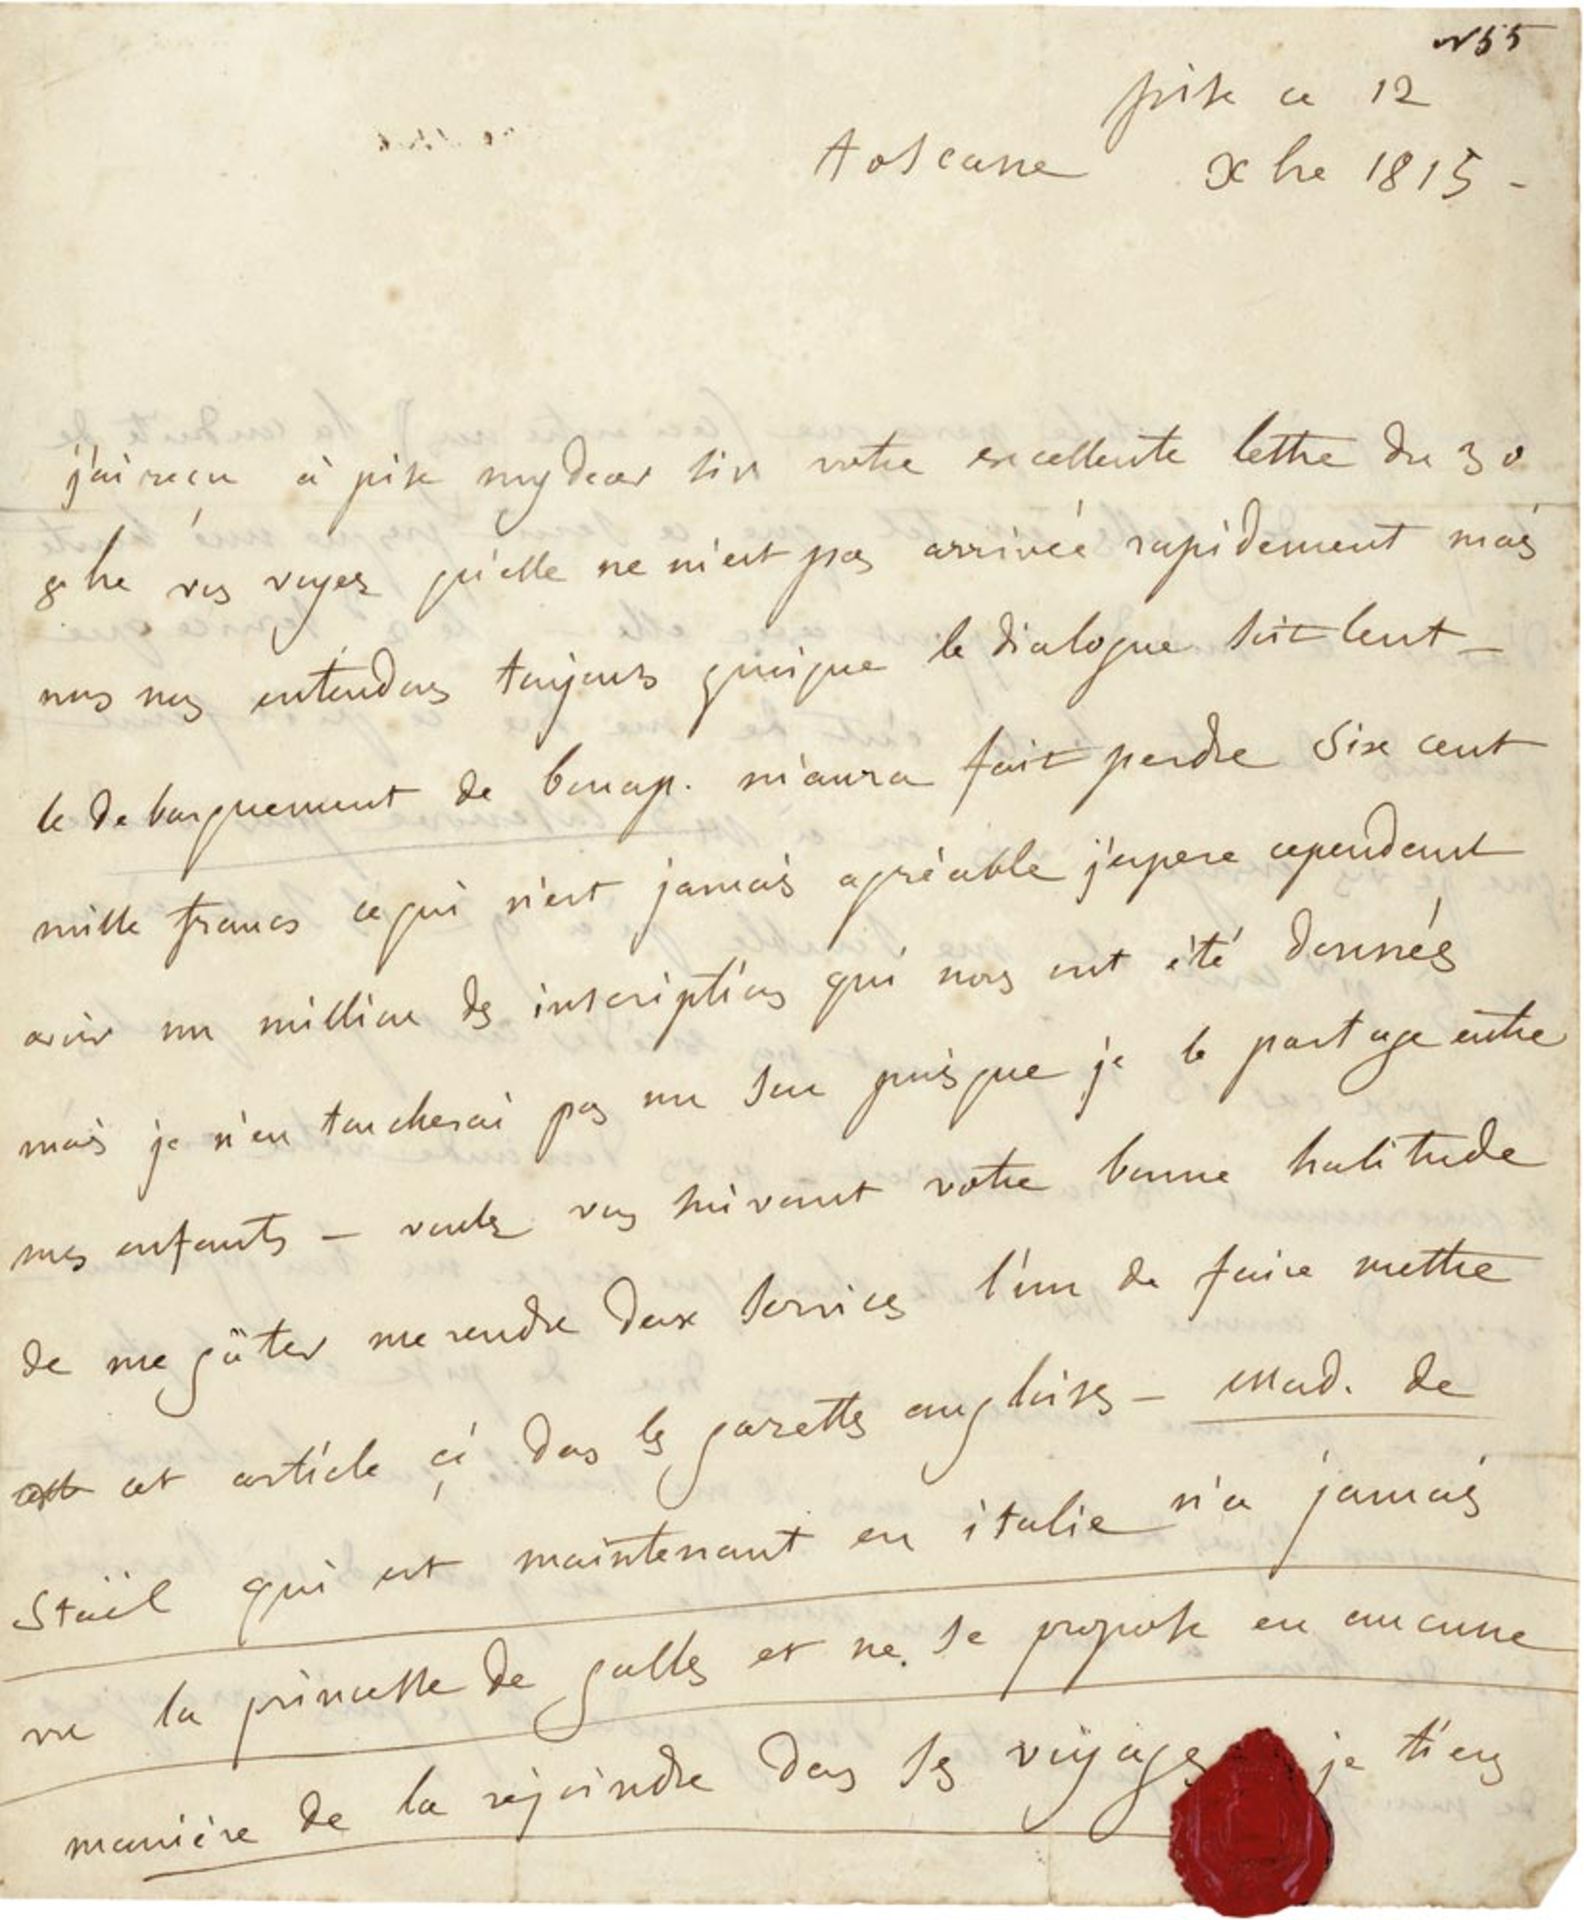 n 55
pise ce 12
toscane xbre 1815 -
j'ai reçu à pise my dear sir votre excellente lettre du 30
8bre vous voyez qu'elle ne m'est pas arrivée rapidement mais
nous nous entendons toujours quoique le dialogue soit lent -
le debarquement de bonap. m'aura fait perdre six cent
mille francs ce qui n'est jamais agréable j'espere cependant
avoir un million des inscriptions qui nous ont été donnés
mais je n'en toucherai pas un sou puisque je le partage entre
mes enfants - voulez vous suivant votre bonne habitude
de me gâter me rendre deux services l'un de faire mettre
cet article ci dans les gazettes angloises - mad. de
Staël qui est maintenant en italie n'a jamais
vu la princesse de galles et ne se propose en aucune
manière de la rejoindre dans ses voyages je tiens